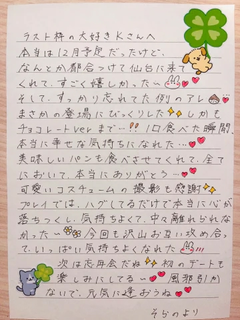 ラスト枠の大好きKさんへ
本当は12月予定だったけど、
なんとか都合つけて仙台に来て
くれて、すごく嬉しかった〜
そして、すっかり忘れてた例のアレ
まさかの登場にびっくりした しかも
チョコレートverまで…!!! 1口食べた瞬間、
本当に幸せな気持ちになれた…
美味しいパンも食べさせてくれて、全て
において本当にありがとう…
可愛いコスチュームの撮影も感謝
プレイでは、ハグしてるだけで本当に心が
落ちつくし、気持ちよくて、中々離れられな
かった〜 今回も沢山お互い攻め合
って、いっぱい気持ちよくなれた
次は忘年会だね 初のデートも
楽しみにしてる〜 風邪引か
ないで、元気に逢おうね
そらのより